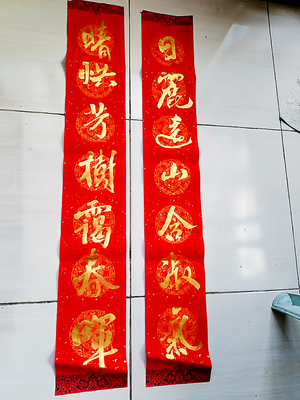 日麗遠山含淑氣
晴烘芳樹靄春暉